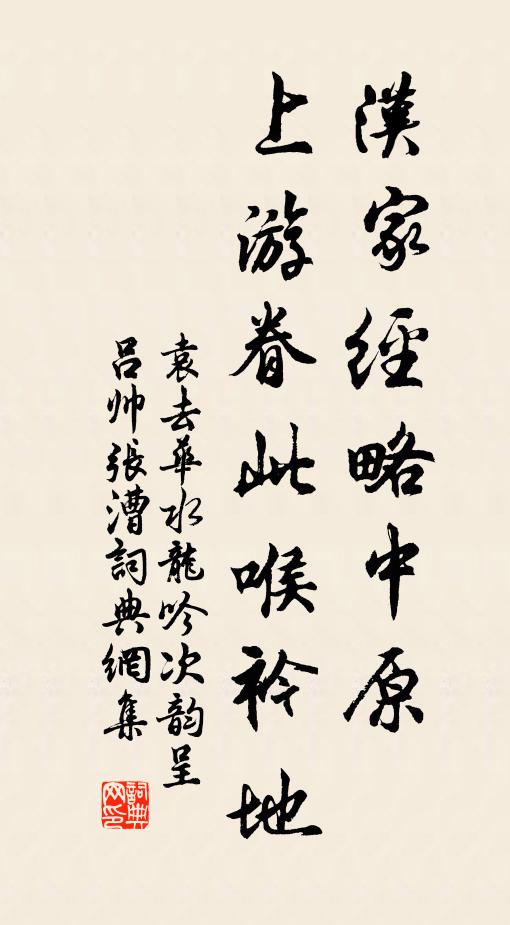 漢家經略中原
上游眷此喉衿地
袁去華水龍吟次韵呈
吕帅張漕詞典網集
詞典网印